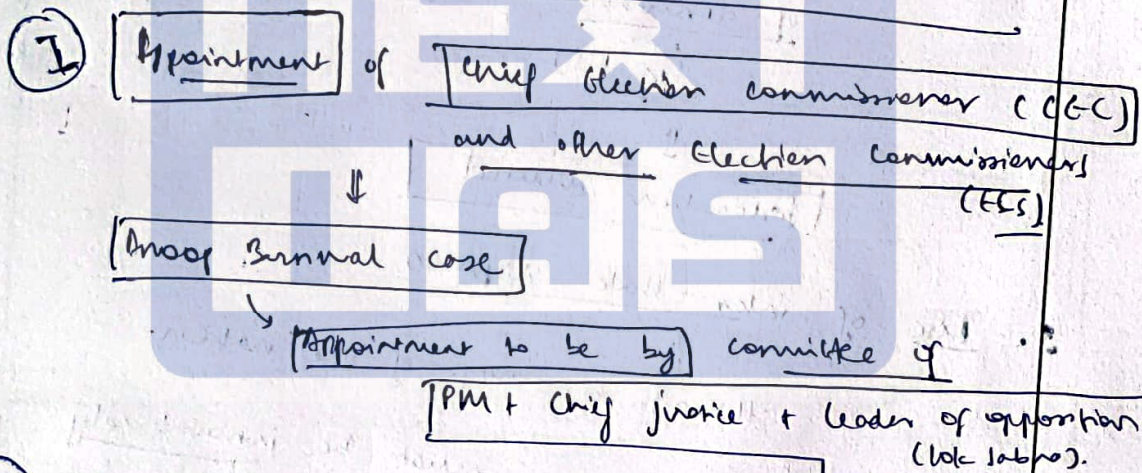 I Appointment of Chief Election Commissioner (CEC)
and other Election Commissioners
(ECs)
⇓
Anoop Baranwal case
↳ Appointment to be by committee of
PM + Chief justice + leader of opposition
(Lok Sabha).
NEXT
IAS